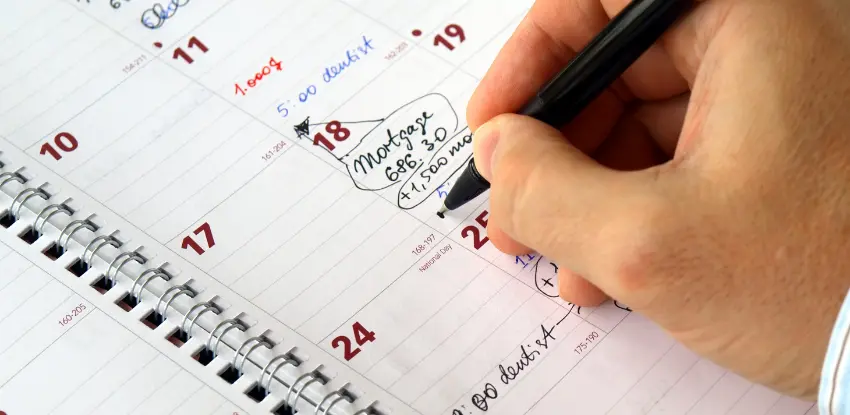 11
154-211
1.000$
5:00 dentist
19
162-203
10
18
161-204
Mortgage
686.30
+1,500
17
168-197
National Day
25
24
160-205
175-190
:00 dentist